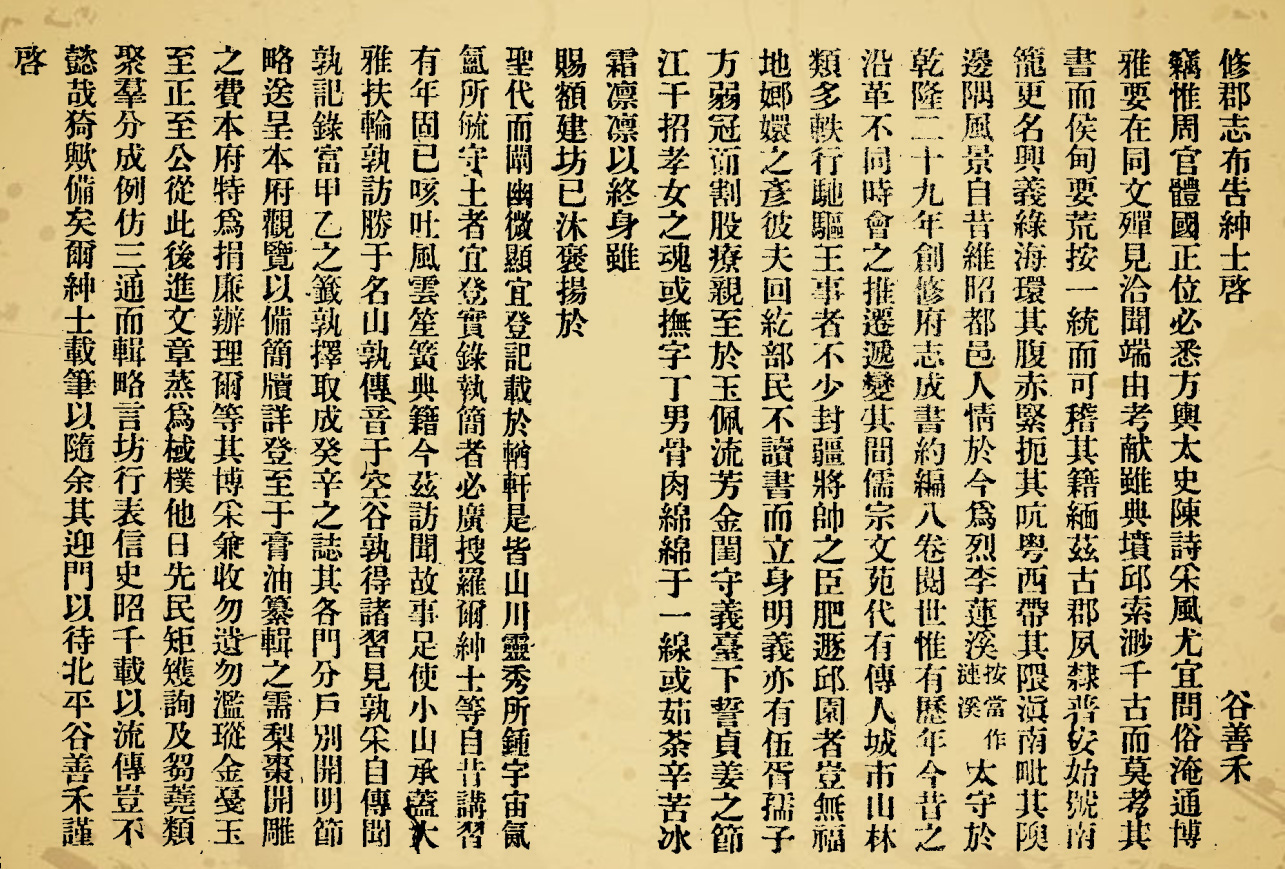 修郡志布告紳士啓 谷善禾
竊惟周官體國正位必悉方輿太史陳詩采風尤宜問俗淹通博
雅要在同文殫見洽聞端由考献雖典墳邱索渺千古而莫考其
書而侯甸要荒按一統而可稽其籍緬茲古郡夙隸普安始號南
籠更名興義綠海環其腹赤緊扼其吭粤西帶其隈滇南毗其隩
邊隅風景自昔維昭都邑人情於今爲烈李蓮溪按當作漣溪太守於
乾隆二十九年創修府志成書約編八卷閱世惟有歷年今昔之
沿革不同時會之推遷遞變其間儒宗文苑代有傳人城市山林
類多軼行馳驅王事者不少封疆將帥之臣肥遯邱園者豈無福
地嫏嬛之彥彼夫回紇部民不讀書而立身明義亦有伍胥孺子
方弱冠而割股療親至於玉佩流芳金閨守義臺下誓貞姜之節
江干招孝女之魂或撫字丁男骨肉綿綿于一線或茹荼辛苦冰
霜凛凛以終身雖
賜額建坊已沐褒揚於
聖代而闡幽微顯宜登記載於輶軒是皆山川靈秀所鍾宇宙氤
氳所毓守土者宜登實錄執簡者必廣搜羅爾紳士等自昔講習
有年固已咳吐風雲笙簧典籍今茲訪聞故事足使小山承蓋大
雅扶輪孰訪勝于名山孰傳音于空谷孰得諸習見孰采自傳聞
孰記錄富甲乙之籤孰擇取成癸辛之誌其各門分戶別開明節
略送呈本府觀覽以備簡牘詳登至于膏油纂輯之需梨棗開雕
之費本府特爲捐廉辦理爾等其博采兼收勿遺勿濫瑽金戞玉
至正至公從此後進文章蒸爲棫樸他日先民矩矱詢及芻蕘類
聚羣分成例仿三通而輯略言坊行表信史昭千載以流傳豈不
懿哉猗歟備矣爾紳士載筆以隨余其迎門以待北平谷善禾謹
啓